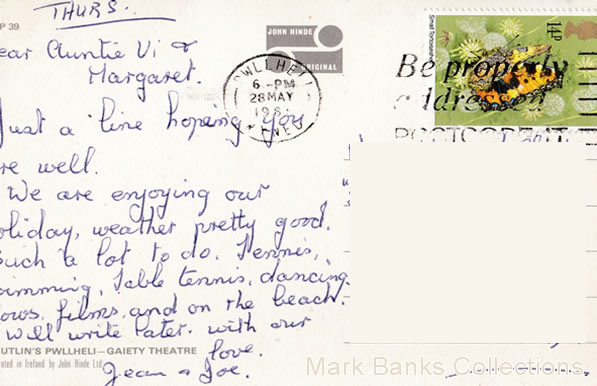 THURS.
P 39
JOHN HINDE
ORIGINAL
Small Tortoiseshell
14P
ear Auntie Vi &
Margaret.
PWLLHELI
6 - PM
28 MAY
198
GWYNEDD
Be properly
addressed
POSTCODE IT
Just a line hoping you
re well.
We are enjoying our
oliday, weather pretty good.
Such a lot to do. Tennis,
imming, Table tennis, dancing
ows, films, and on the beach.
Will write later. with our
love.
Jean & Joe.
UTLIN'S PWLLHELI—GAIETY THEATRE
nted in Ireland by John Hinde Ltd
Mark Banks Collections